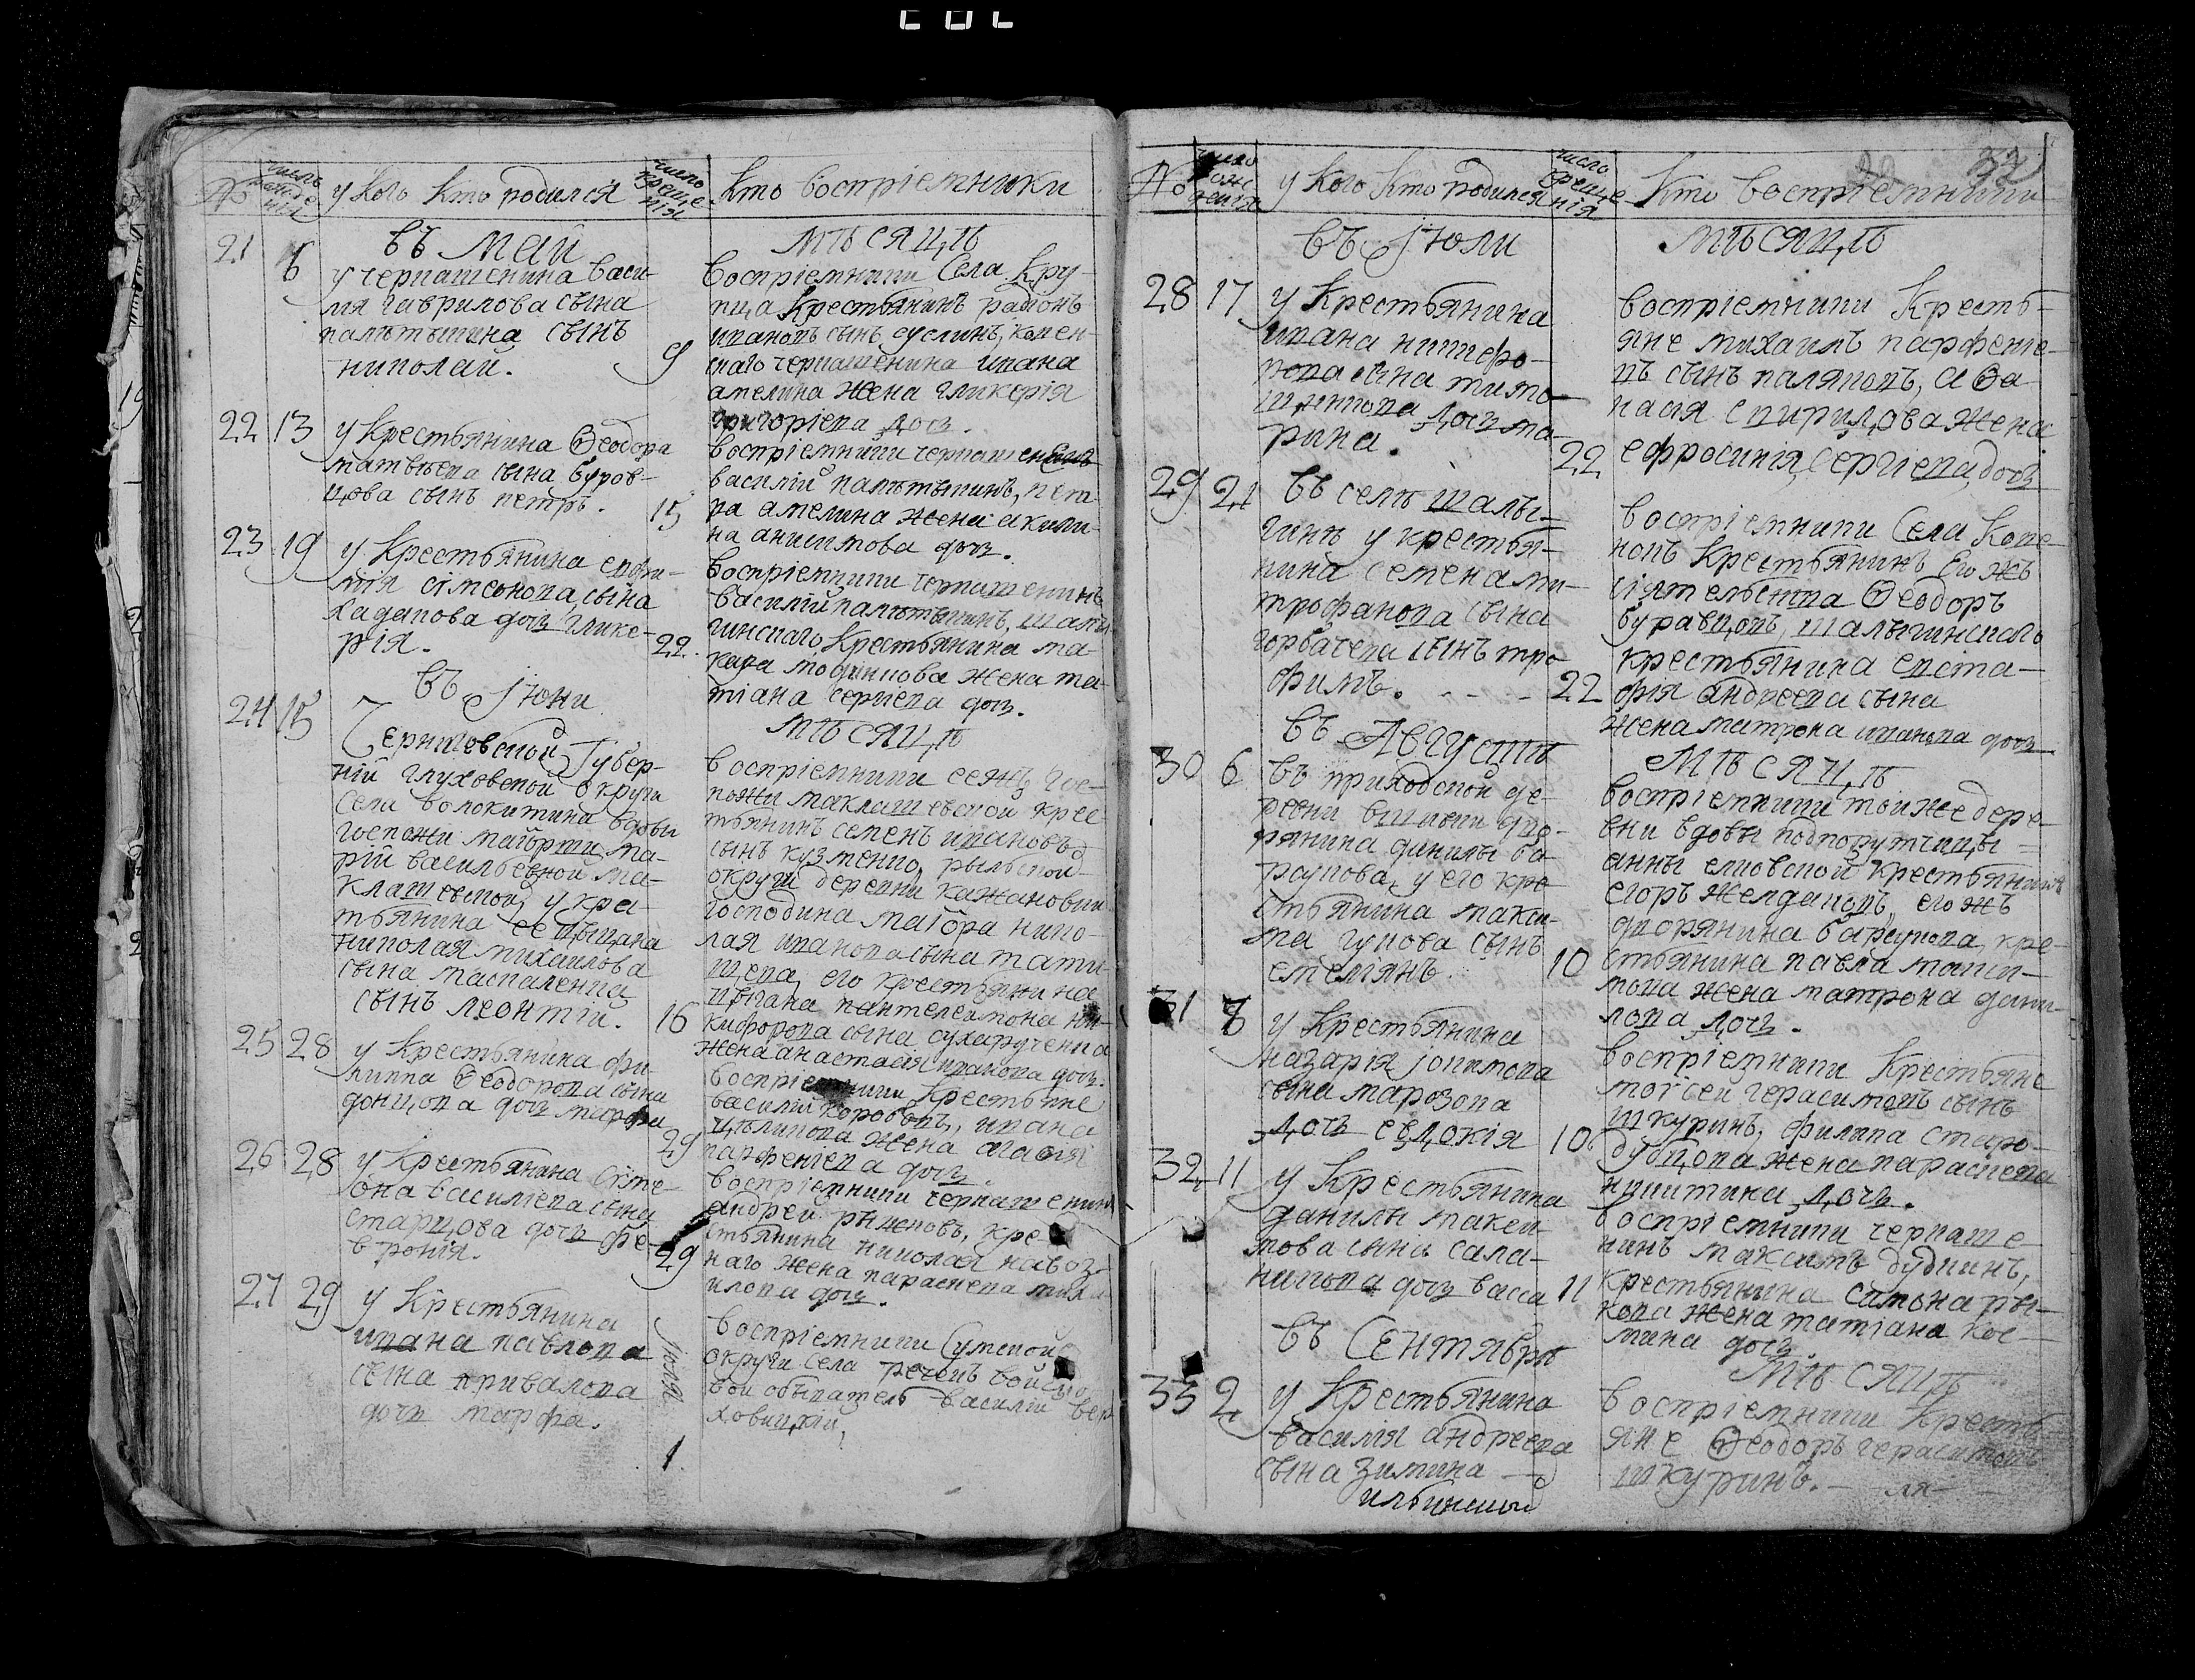 № число рожде нія у кого кто родился число креще нія Кто воспріемники
въ маіи мѣсяцѣ
21 8
у черкашенина васи-
лія гаврилова сына
сынъ
николай. 9
воспріемники Села Кру-
пца Крестьянинъ
ивановъ сынъ суслинъ, копен-
скаго черкашенина ивана
амелина жена гликерія
григоріева дочь.
22 13
у Крестьянина Ѳеодора
матвѣева сына буров-
цова сынъ петръ. 15
воспріемники
василій пет-
ра амелина жена акили-
на анисимова дочь.
23 19
у Крестьянина евфи-
мія сімеонова сына
хадапова дочь глике-
рія. 22.
воспріемники черкашенинъ
василій шалы-
гинскаго Крестьянина ма-
кара жена та-
тіана сергіева дочь.
въ Іюни мѣсяцѣ
24 15
Черниговской Губер-
ніи глуховской округи
села волокитина вдовы
госпожи маіорши ма-
ріи васильевной ма-
клашевской, у кре-
тьянина ее цыгана
николая михайлова
сына
сынъ леонтій. 16
воспріемники еежъ гос-
пожи маклашевской крес-
тьянинъ семенъ ивановъ
сынъ кузменко, рыльской
округи деревни кажановки
господина маіора нико-
лая иванова сына тати-
щева его крестьянина
цыгана пантелеимона ни-
кифорова сына
жена анастасія иванова дочь.
25 28
у Крестьянина фи-
липпа Ѳеодорова сына
донцова дочь марфа 29
воспріемники Крестьяне
василій корововъ, ивана
жена агафія
парфеніева дочь.
26 28
у Крестьянина Сіме-
она василіева сына
старцова дочь фе-
вронія. 29
воспріемники черкашенинъ
андрей рыженовъ, кре-
стьянина николая навоз-
наго жена параскева миха-
илова дочь.
27 29
у Крестьянина
ивана павлова
сына привалова
дочь марфа.
Іюля 1.
воспріемники Сумской
округи села речекъ войско-
вой обыватель василій вер-
ховицкій,
37
№ число рож денія у кого кто родился число креще нія Кто воспріемники
въ Іюли мѣсяцѣ
28 17
у Крестьянина
ивана никифо-
рова сына тимо-
шинкова дочь ма-
рина. 22
воспріемники Кресть-
яне михаилъ парфеніе-
въ сынъ паляковъ, аѳа-
насія спиридова жена
ефросинія сергіева дочь
29 21
въ селѣ шалы-
гинѣ у крестья-
нина семена ми-
трофанова сына
горбачева сынъ тро-
фимъ. 22
воспріемники Села Копе-
нокъ Крестьянинъ Его жъ
сіятельства Ѳеодоръ
буравцовъ, шалыгинскаго
крестьянина евста-
фія андреева сына
жена матрона иванова дочь
въ Августѣ мѣсяцѣ
30 6
въ приходской де-
ревни дво-
рянина данилы ба-
раунова, у его кре-
стьянина макси-
ма гукова сынъ
емеліянъ. 10
воспріемники тойже дере-
вни вдовы подпорутчицы
анны елиовской крестьянинъ
егоръ желдаковъ, его жъ
дворянина бараунова, кре-
стьянина павла макси-
мова жена матрона дани-
лова дочь.
31 8
у Крестьянина
назарія іоакимова
сына марозова
дочь евдокія 10
воспріемники Крестьяне
моѵсей герасимовъ сынъ
шкуринъ, филипа старо-
дубцова жена параскева
никитина дочь.
32 11
у Крестьянина
данилы макси-
мова сына сала-
никова дочь васса 11
воспріемники черкаше-
нинъ максимъ дудкинъ,
крестьянина симона ры-
кова жена татіана кос-
мина дочь.
въ Сентябрѣ мѣсяцѣ
33 2
у Крестьянина
василія андреева
сына зимина
ильинской
воспріемники Кресть-
яне Ѳеодоръ герасимовъ
шкуринъ.